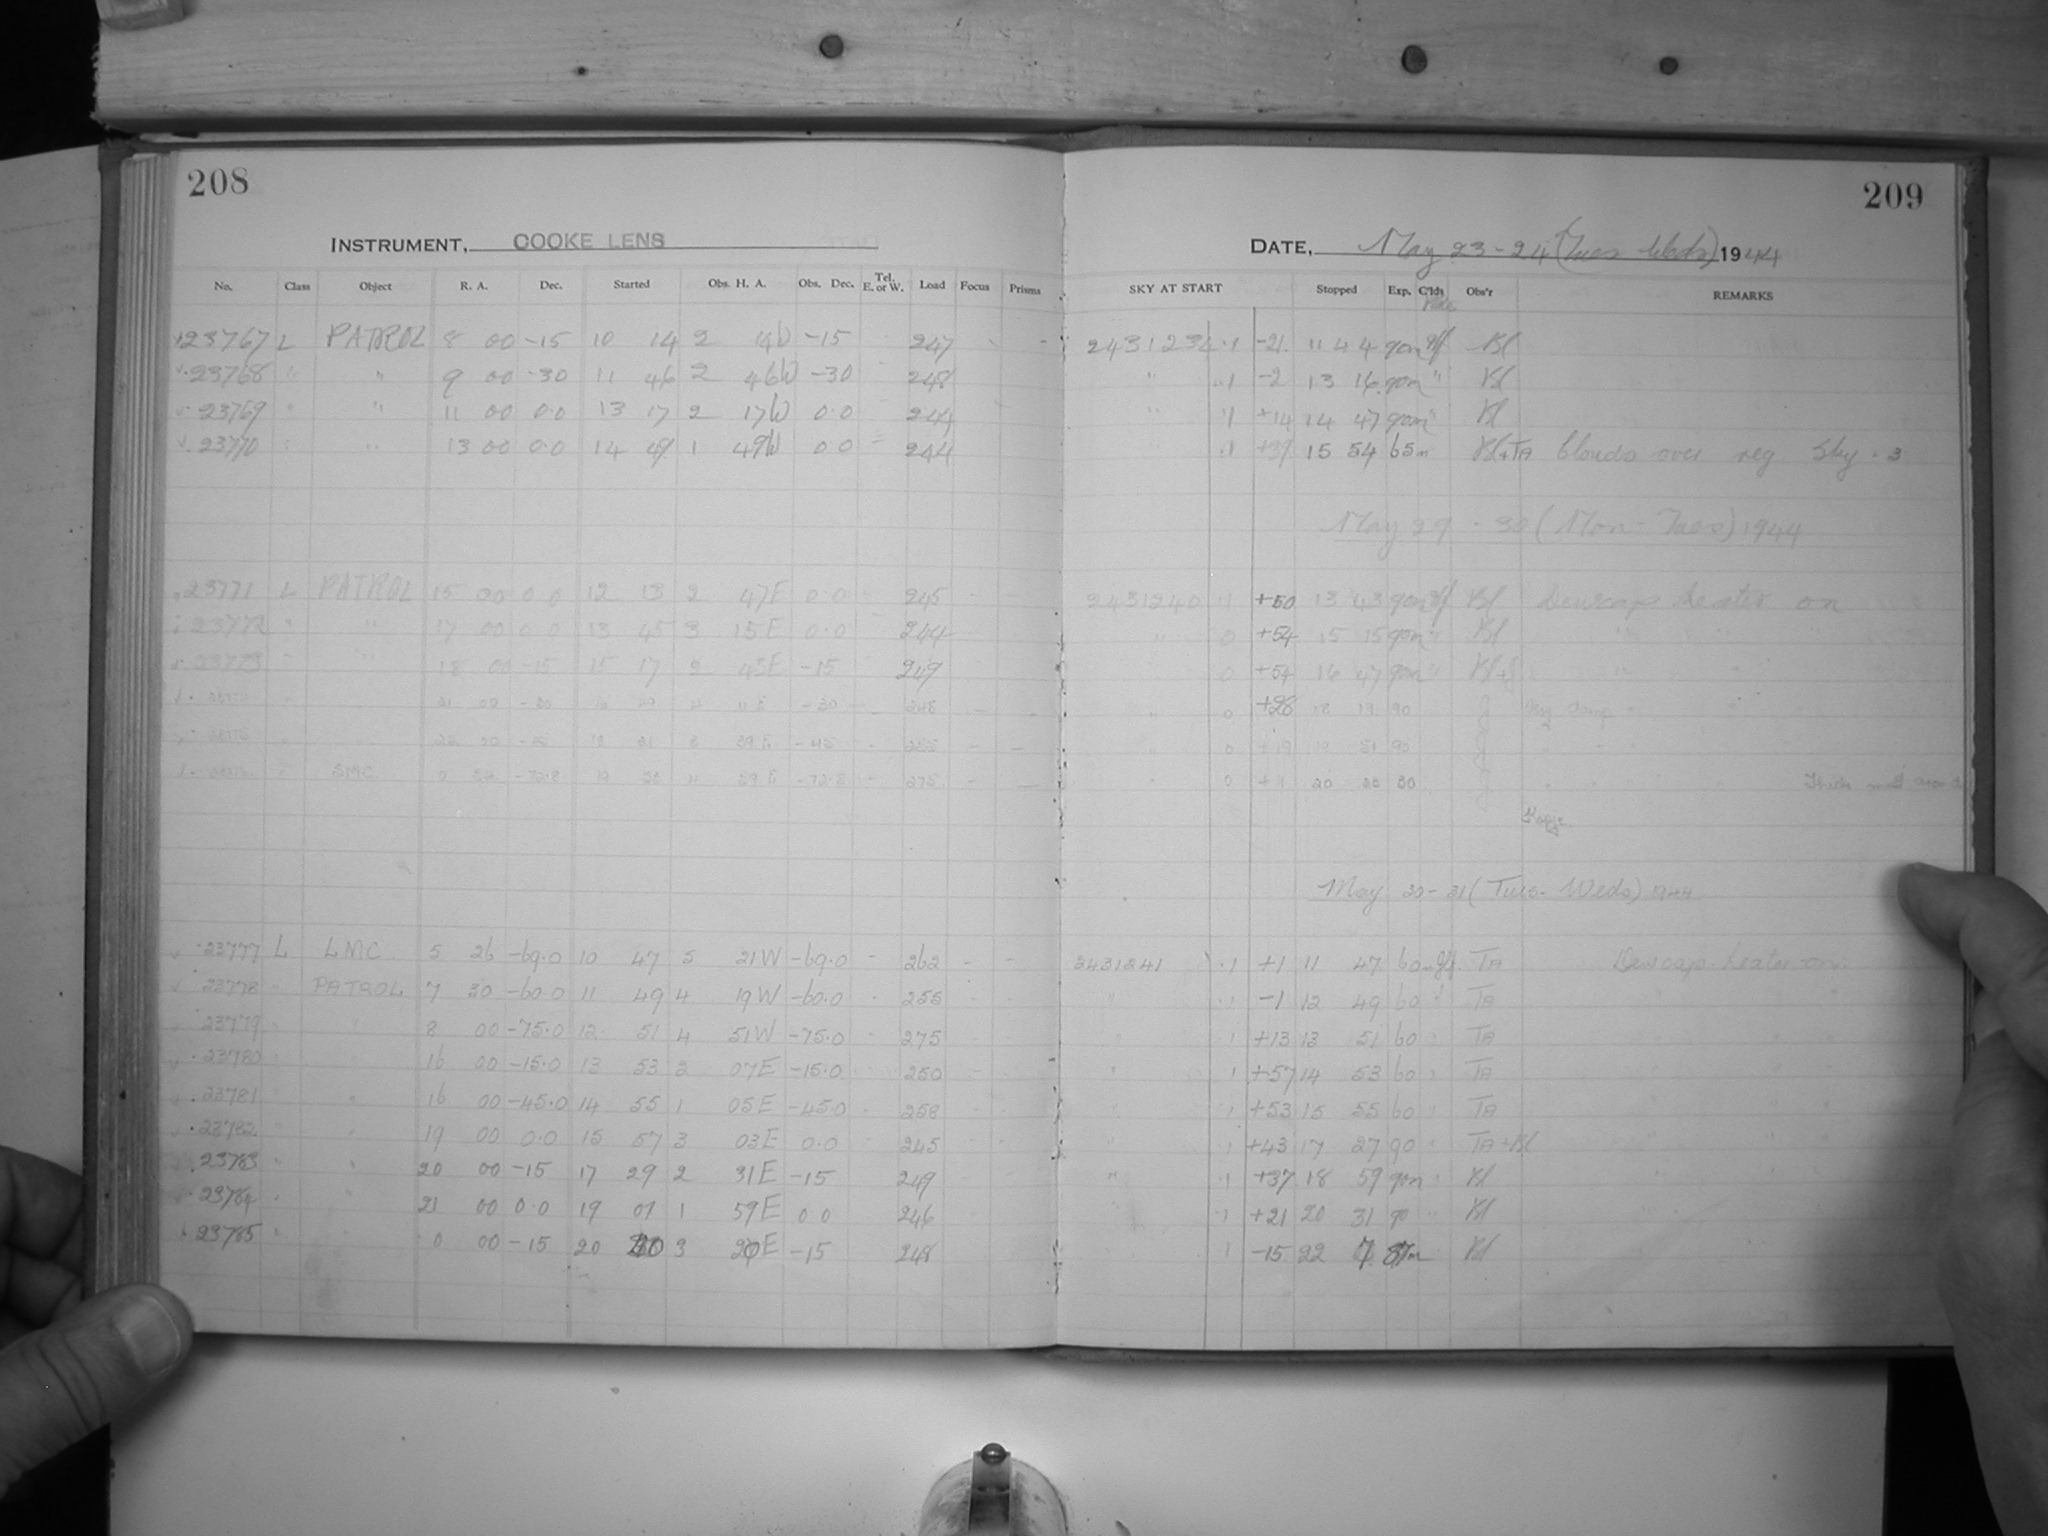 208
INSTRUMENT, COOKE LENS
No. Class Object R. A. Dec. Started Obs. H. A. Obs. Dec. Tel. E. or W. Load Focus Prisms
23767 L PATROL 8 00 -15 10 14 2 14W -15 247
23768 " " 9 00 -30 11 46 2 46W -30 248
23769 " " 11 00 0.0 13 17 2 17W 0.0 244
23770 " " 13 00 0.0 14 49 1 49W 0.0 244
23771 L PATROL 15 00 0 0 12 13 2 47E 0.0 245
23772 " " 17 00 0 0 13 45 3 15E 0.0 244
23773 " " 18 00 -15 15 17 2 43E -15 249
21 00 -30 16 49 4 11 E -30 248
-45 255
SMC 0 54 -72.8 19 4 59 E -72.8 275
23777 L LMC 5 26 -69.0 10 47 5 21W -69.0 262
23778 " PATROL 7 30 -60.0 11 49 4 19W -60.0 255
23779 " " 8 00 -75.0 12 51 4 51W -75.0 275
23780 " " 16 00 -15.0 13 53 2 07E -15.0 250
23781 " " 16 00 -45.0 14 55 1 05E -45.0 258
23782 " " 19 00 0.0 15 57 3 03E 0.0 245
23783 " " 20 00 -15 17 29 2 31E -15 249
23784 " " 21 00 0.0 19 01 1 59E 0 0 246
23785 " " 0 00 -15 20 3 20E -15 248
209
DATE, May 23-24 (Tues Weds) 1944
SKY AT START Stopped Exp. C'lds Obs'r REMARKS
2431234 .1 -21 11 44 90m Bl
" .1 -2 13 16 90m " Bl
" .1 +14 14 47 90m " Bl
.1 +39 15 54 65m Bl+TA Clouds over reg Sky .3
May 29-30 (Mon-Tues) 1944
2431240 .1 +50 13 43 90m Bl Dewcap heater on
" 0 +54 15 15 90m " Bl " " "
" 0 +54 16 47 90m " Bl+J "
" 0 +28 18 19 90 J Very damp "
" 0 +19 19 51 90 J
" 0 20 30 J Thick mist around
Kopje.
May 30-31 (Tues-Weds) 1944
2431241 .1 +1 11 47 60m TA Dewcap heater on
" .1 -1 12 49 60 " TA "
" .1 +13 13 51 60 TA "
" .1 +57 14 53 60 " TA "
" .1 +53 15 55 60 " TA "
" .1 +43 17 27 90 " TA+Bl "
" .1 +37 18 59 90m " Bl
.1 +21 20 31 90 " Bl
.1 -15 22 7 87m Bl